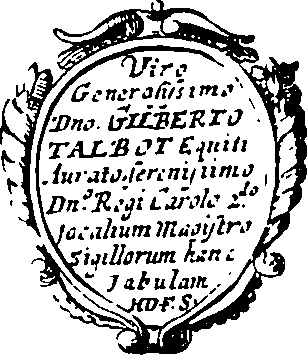 Viro
Generosissimo
Dno. GILBERTO
TALBOT Equiti
Aurato, serenissimo
Dnº. Regi Carolo 2.do
Jocalium Magistro
Sigillorum hanc
Tabulam
HDFS